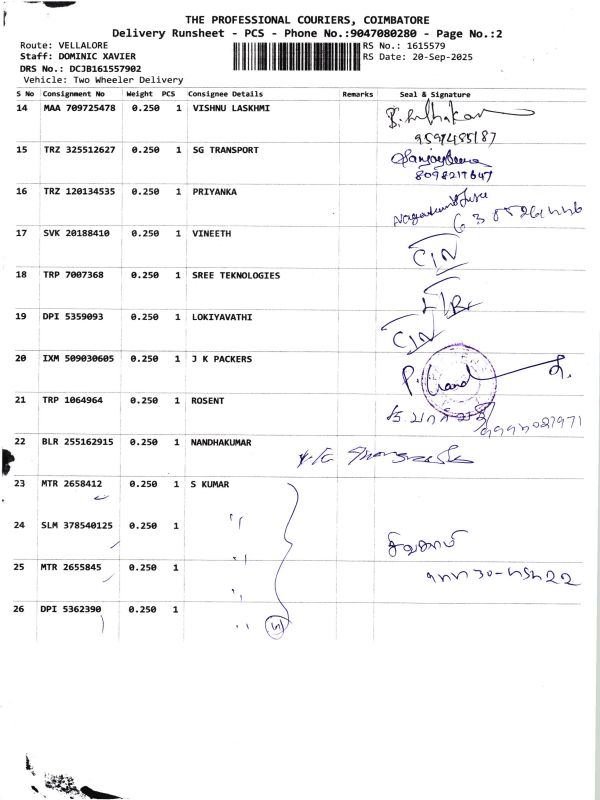 THE PROFESSIONAL COURIERS, COIMBATORE
Delivery Runsheet - PCS - Phone No.:9047080280 - Page No.:2
Route: VELLALORE RS No.: 1615579
Staff: DOMINIC XAVIER RS Date: 20-Sep-2025
DRS No.: DCJB161557902
Vehicle: Two Wheeler Delivery
S No Consignment No Weight PCS Consignee Details Remarks Seal & Signature
14 MAA 709725478 0.250 1 VISHNU LASKHMI
15 TRZ 325512627 0.250 1 SG TRANSPORT
8098217647
16 TRZ 120134535 0.250 1 PRIYANKA
17 SVK 20188410 0.250 1 VINEETH
CIN
18 TRP 7007368 0.250 1 SREE TEKNOLOGIES
19 DPI 5359093 0.250 1 LOKIYAVATHI
CIN
20 IXM 509030605 0.250 1 J K PACKERS
21 TRP 1064964 0.250 1 ROSENT
22 BLR 255162915 0.250 1 NANDHAKUMAR
23 MTR 2658412 0.250 1 S KUMAR
24 SLM 378540125 0.250 1 "
25 MTR 2655845 0.250 1 "
26 DPI 5362390 0.250 1 "